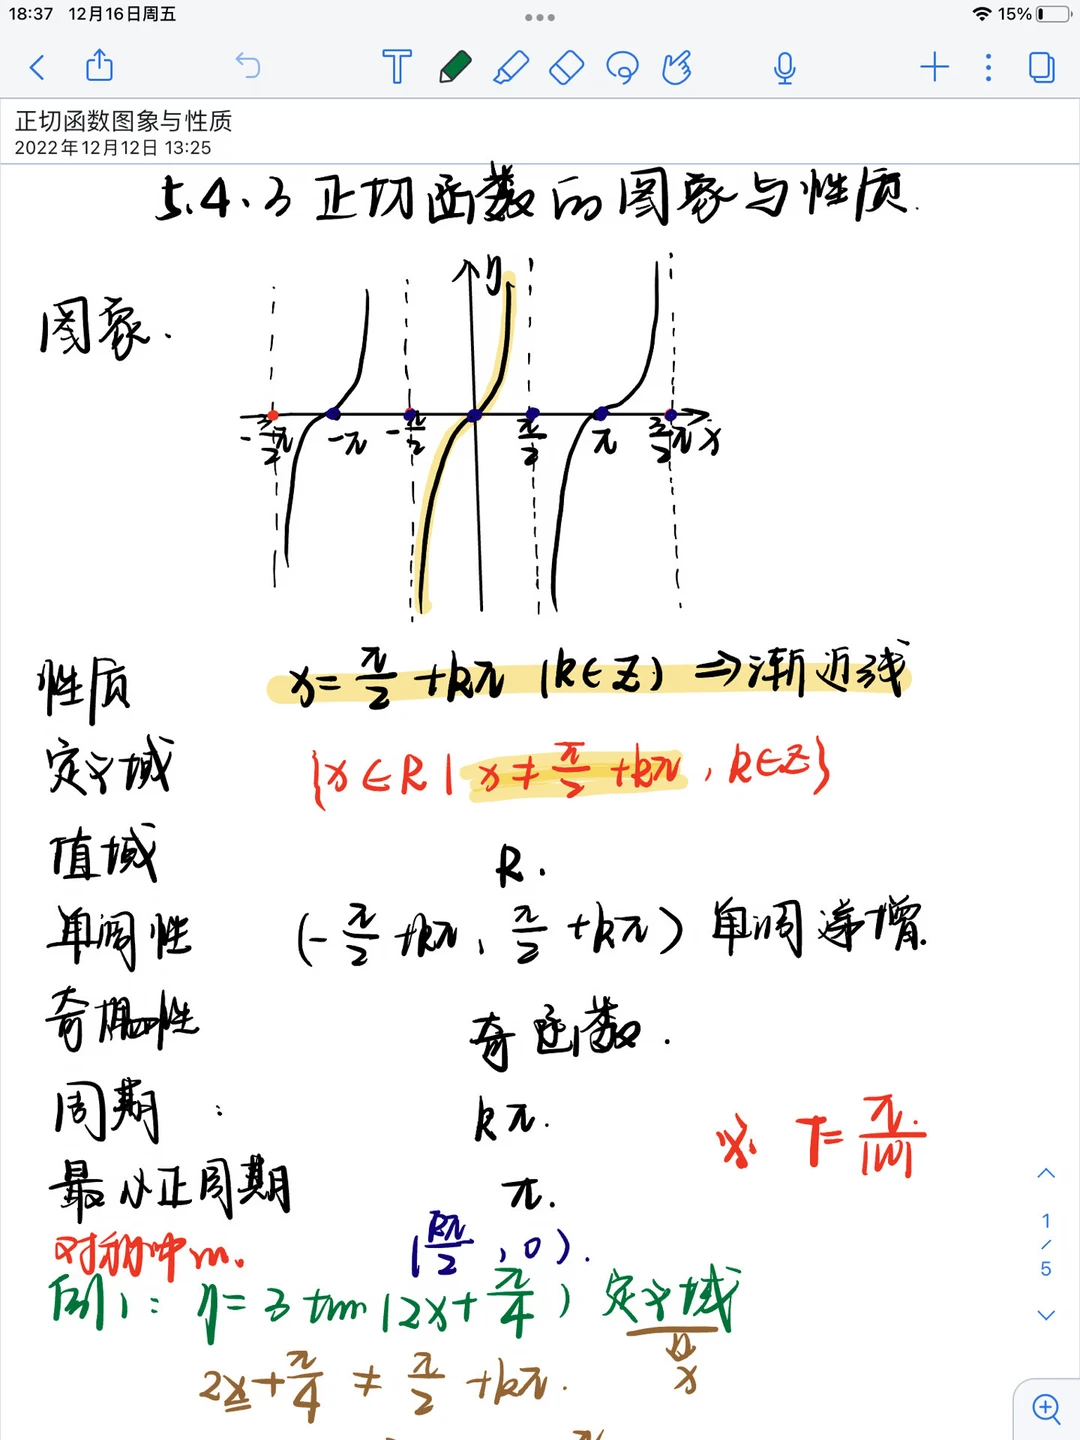 18:37 12月16日周五 15%
正切函数图象与性质
2022年12月12日 13:25
5.4.3 正切函数的图象与性质.
图象.
y
-3/2π -π -π/2 π/2 π 3/2π x
性质 x=π/2+kπ (k∈Z) ⇒渐近线
定义域 {x∈R | x≠π/2+kπ, k∈Z}
值域 R.
单调性 (-π/2+kπ, π/2+kπ) 单调递增.
奇偶性 奇函数.
周期: kπ. ※ T=π/|W|
最小正周期 π.
对称中心. (kπ/2, 0).
例1: y=3tan(2x+π/4) 定义域
x
2x+π/4≠π/2+kπ.
1/5